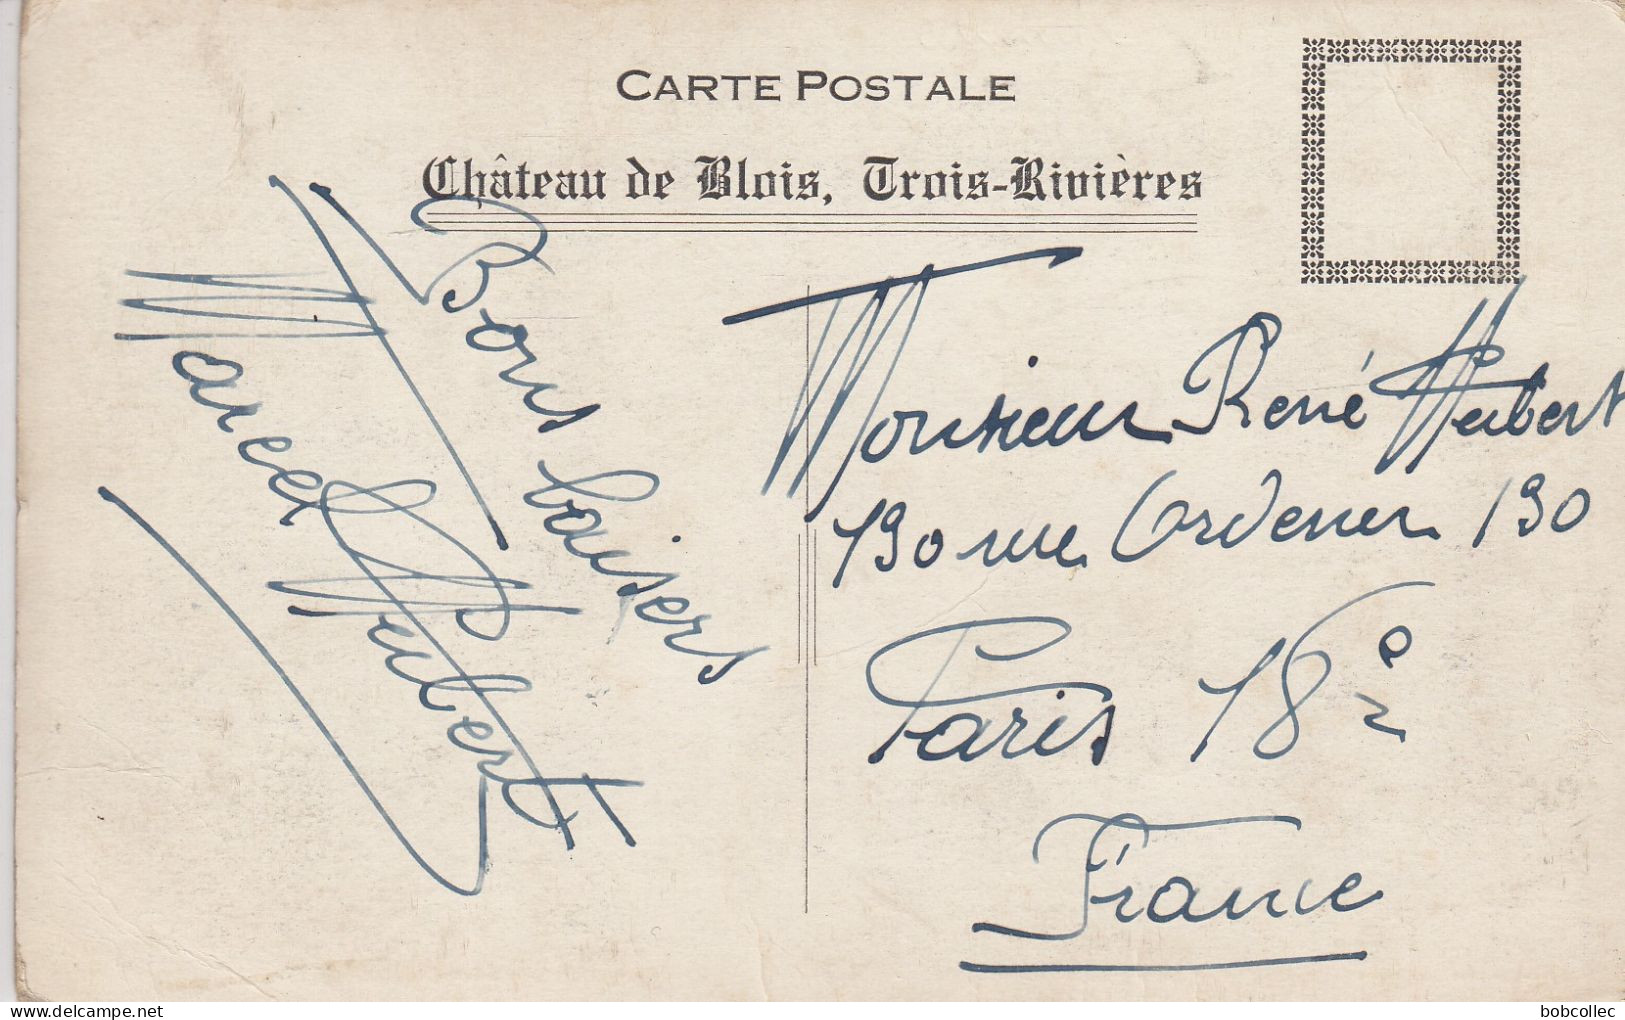 CARTE POSTALE
Château de Blois, Trois-Rivières
Bons baisers
Marcel Hubert
Monsieur René Hubert
190 rue Ordener 190
Paris 18e
France
bobcollec